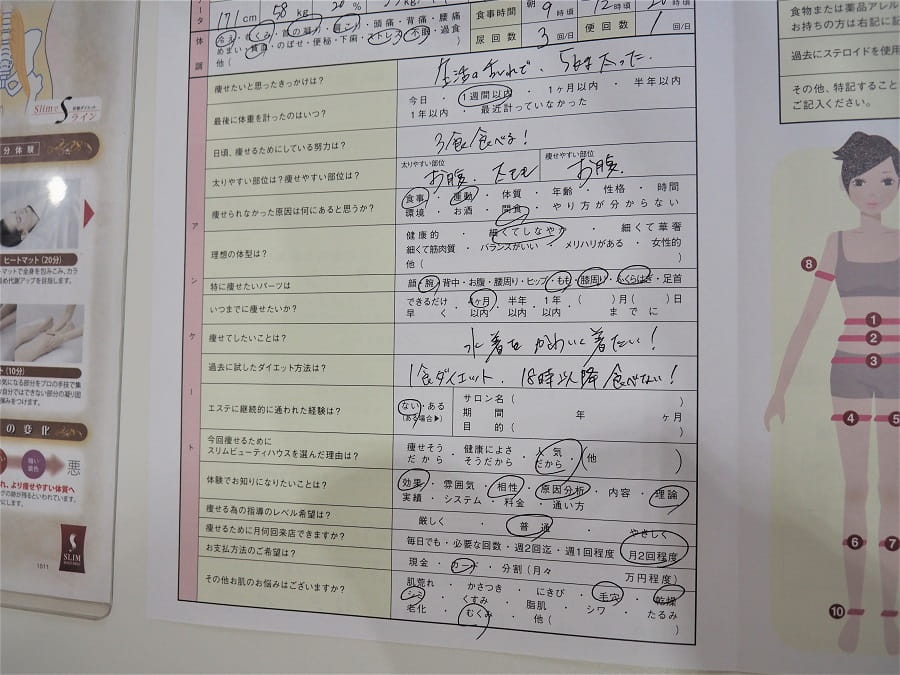 171cm 58kg 20%
食事時間 朝 9時頃 12時頃 20時頃
尿回数 3回/日 便回数 1回/日
体調
冷え・むくみ・首の凝り・肩こり・頭痛・背痛・腰痛
めまい・貧血・のぼせ・便秘・下痢・ストレス・不眠・過食
他(
アンケート
痩せたいと思ったきっかけは? 生活のみだれで、5kg太った。
最後に体重を計ったのはいつ? 今日・1週間以内・1ヶ月以内・半年以内
1年以内・最近計っていなかった
日頃、痩せるためにしている努力は? 3食食べる!
太りやすい部位は?痩せやすい部位は? 太りやすい部位 お腹、太もも 痩せやすい部位 お腹
痩せられなかった原因は何にあると思うか? 食事・運動・体質・年齢・性格・時間
環境・お酒・間食・やり方が分からない
理想の体型は? 健康的・細くてしなやか・細くて華奢
細くて筋肉質・バランスがいい・メリハリがある・女性的
他(
特に痩せたいパーツは? 顔・腕・背中・お腹・腰周り・ヒップ・もも・膝周り・ふくらはぎ・足首
いつまでに痩せたいか? できるだけ早く・1ヶ月以内・半年以内・1年以内・( )月( )日までに
痩せてしたいことは? 水着をかわいく着たい!
過去に試したダイエット方法は? 1食ダイエット、18時以降食べない!
エステに継続的に通われた経験は? ない・ある
(ある場合▶)
サロン名( )
期間 年 ヶ月
目的( )
今回痩せるために
スリムビューティハウスを選んだ理由は? 痩せそうだから・健康によさそうだから・人気だから・(他 )
体験でお知りになりたいことは? 効果・雰囲気・相性・原因分析・内容・理論
実績・システム・料金・通い方
痩せる為の指導のレベル希望は? 厳しく・普通・やさしく
痩せるために月何回来店できますか? 毎日でも・必要な回数・週2回迄・週1回程度・月2回程度
お支払方法のご希望は? 現金・カード・分割(月々 万円程度)
その他お肌のお悩みはございますか? 肌荒れ・かさつき・にきび・毛穴・乾燥
シミ・くすみ・脂肌・シワ・たるみ
老化・むくみ・他( )
食物または薬品アレル
お持ちの方は右記に記
過去にステロイドを使用
その他、特記すること
ご記入ください。
8
1
2
3
4
5
6
7
10
Slimで S ライン
分体験
ヒートマット(20分)
ト(10分)
の変化
悪
れ、より痩せやすい体質へ
SLIM
1011